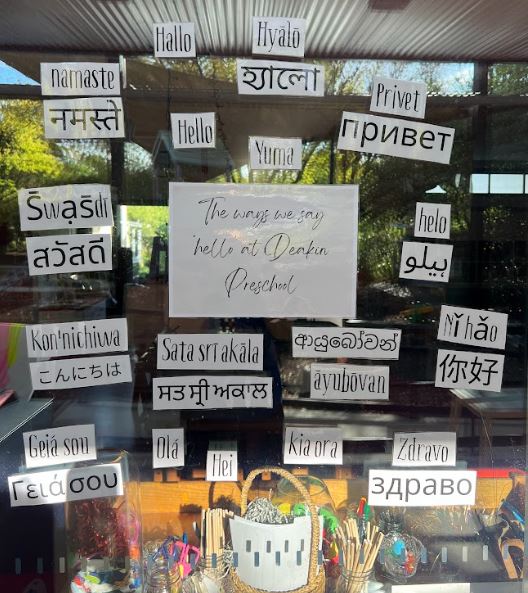 Hallo
Hyālō
হ্যালো
namaste
नमस्ते
Privet
привет
Hello
Yuma
The ways we say
'hello at Deakin
Preschool
S̄wạs̄dī
สวัสดี
helo
ہیلو
Kon'nichiwa
こんにちは
Sata srī akāla
ਸਤ ਸ੍ਰੀ ਅਕਾਲ
ආයුබෝවන්
āyubōvan
Nǐ hǎo
你好
Geiá sou
Γειά σου
Olá
Hei
kia ora
Zdravo
здраво